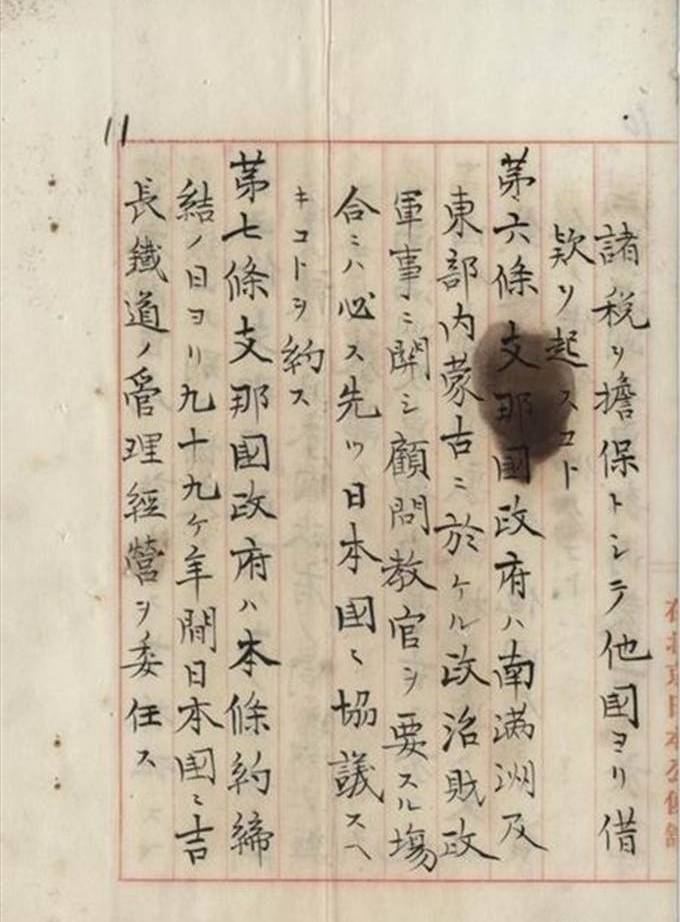 諸税ヲ擔保トシテ他國ヨリ借
欵ヲ起スコト
第六條支那國政府ハ南満洲及
東部内蒙古ニ於ケル政治財政
軍事ニ関シ顧問教官ヲ要スル塲
合ニハ必ス先ツ日本國ニ協議スヘ
キコトヲ約ス
第七條支那國政府ハ本條約締
結ノ日ヨリ九十九ケ年間日本國ニ吉
長鐵道ノ管理經營ヲ委任ス
11